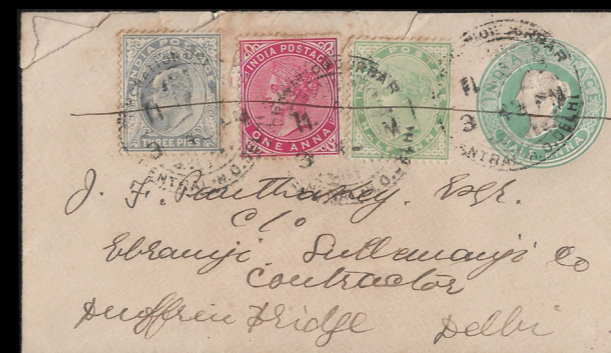 INDIA POSTAGE
THREE PIES
INDIA POSTAGE
ONE ANNA
INDIA POSTAGE
HALF ANNA
DURBAR
CENTRAL
DELHI
J. F.
Esq.
C/o
Ebramji Sullemanji & Co
Contractor
Duffrein Bridge Delhi